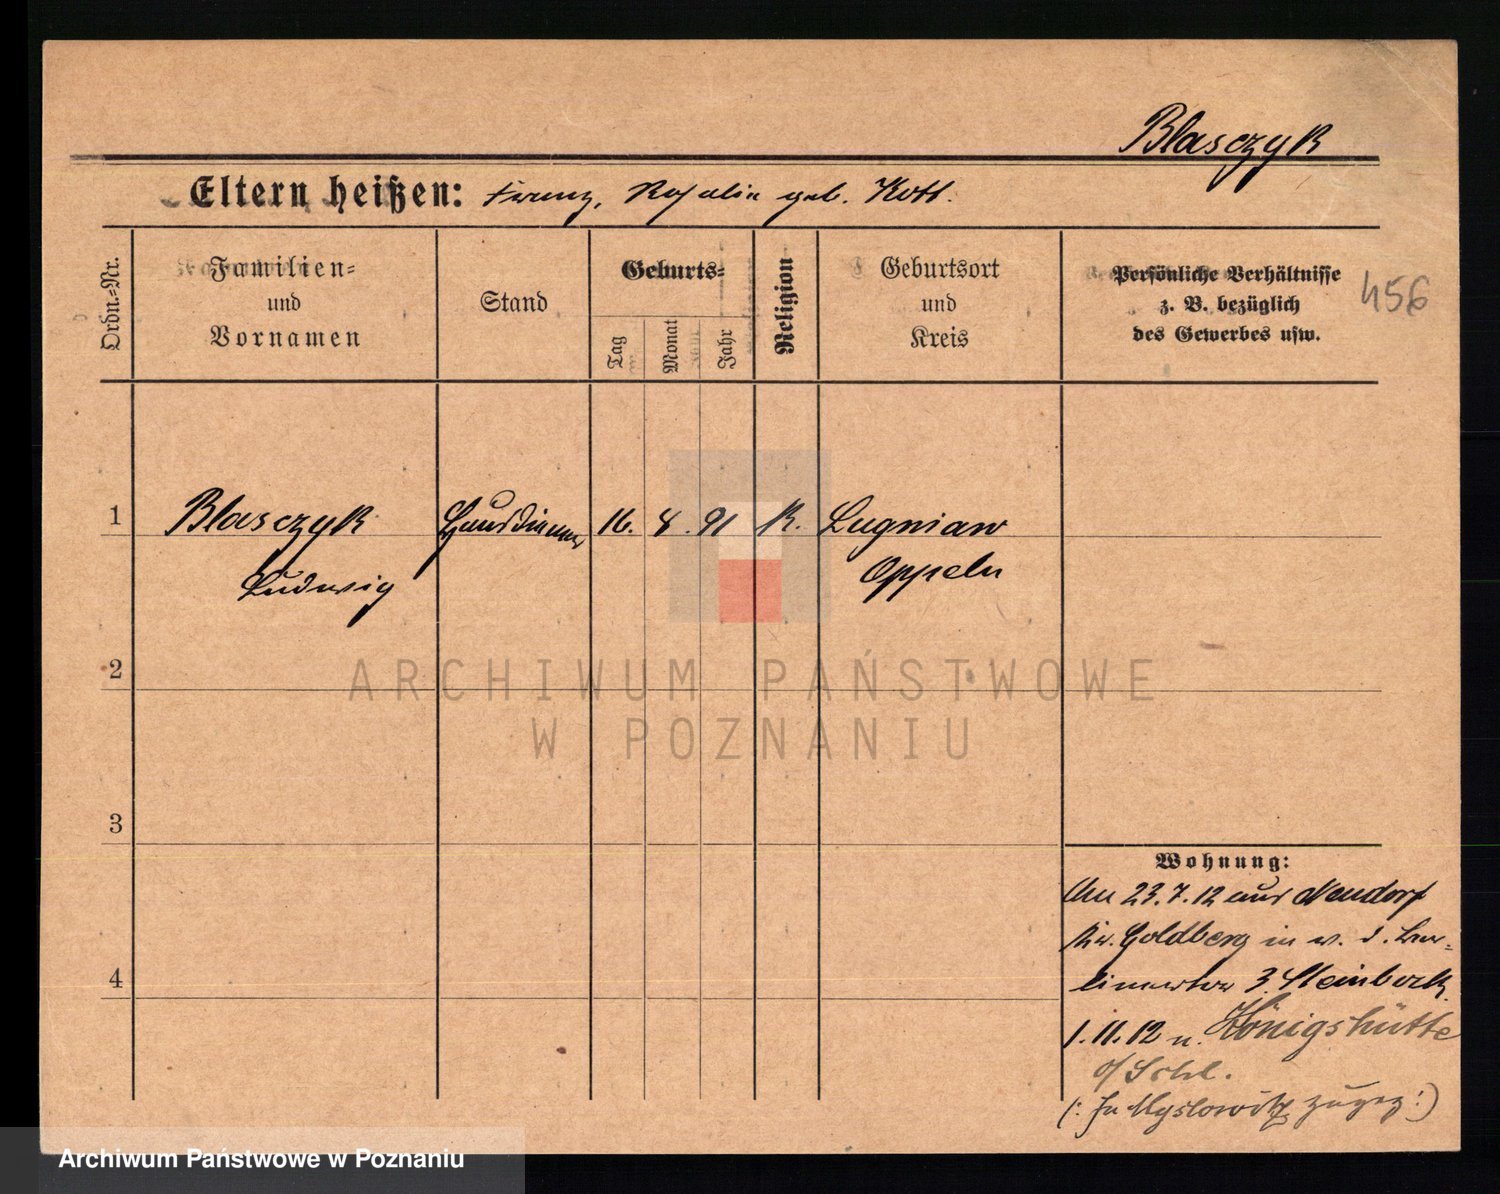 Blasczyk
Eltern heißen: Franz, Rosalie geb. Kott.
Ordn.-Nr.
Familien-
und
Vornamen
Stand
Geburts-
Tag
Monat
Jahr
Religion
Geburtsort
und
Kreis
Persönliche Verhältnisse
z. B. bezüglich
des Gewerbes usw.
456
1
Blasczyk
Ludwig
Hausdiener
16. 8. 91
K.
Lugniaw
Oppeln
2
3
4
Wohnung:
Am 23.7.12 aus Neudorf
Kr. Goldberg in W. d. Ber-
linertor 3. Steinbock
1.11.12 n. Königshütte
o/Schl.
(: In Myslowitz zugez :)
ARCHIWUM PAŃSTWOWE
W POZNANIU
Archiwum Państwowe w Poznaniu